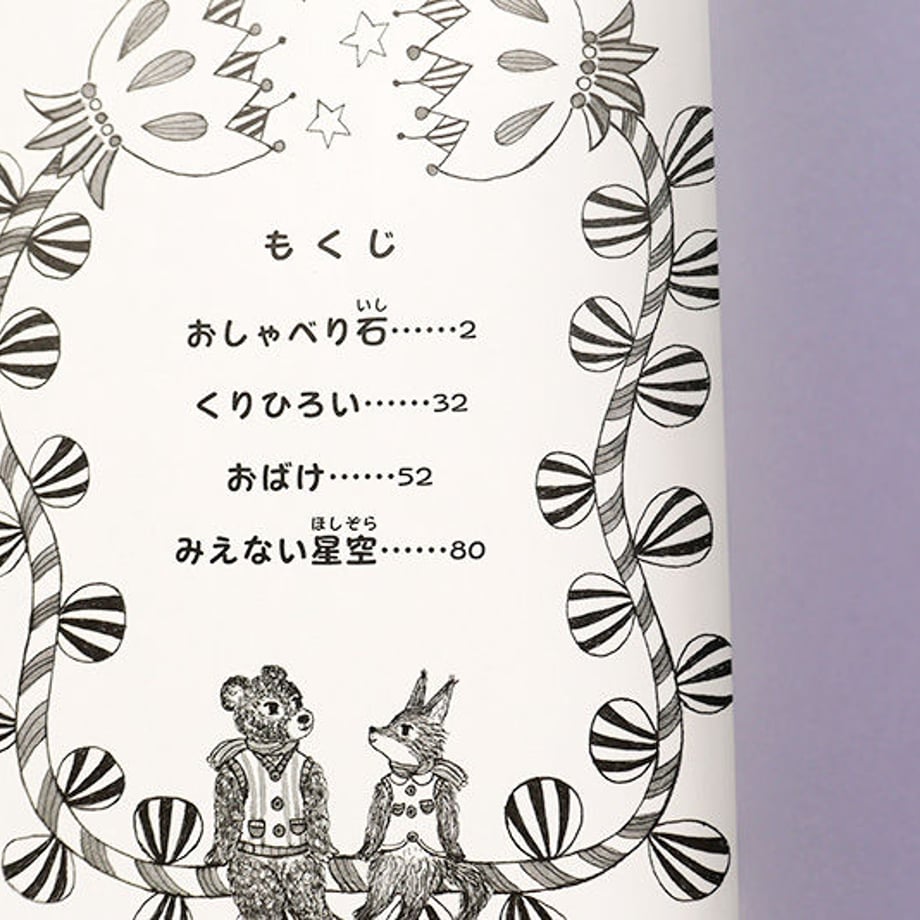 もくじ
いし
おしゃべり石……2
くりひろい……32
おばけ……52
ほしぞら
みえない星空……80